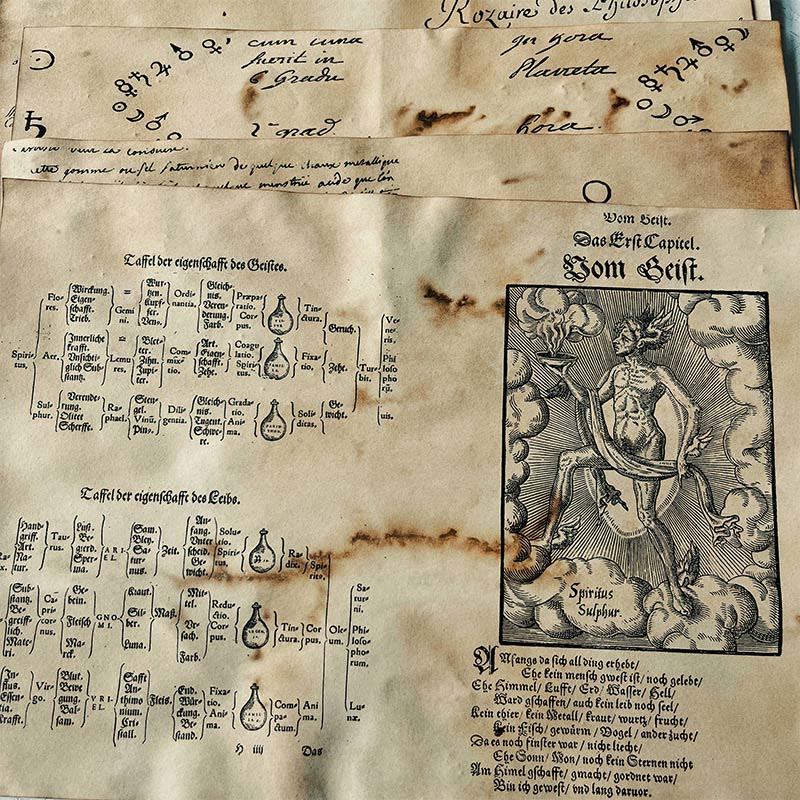 Rozaire des Philosoph
☽ ☿ ♄ ♃ ♂ ♀ cum luna
fuerit in
6 Gradu
☉ ☽ ♂
♄ 2 grad
In hora
Planeta
hora
cette gomme ou sel saturnien de quelque chaux metallique
Taffel der eigenschafft des Geistes.
Flo-
res.
Wirckung.
Eigen-
schafft.
Trieb.
=
Gemi
ni.
Wur-
tzen.
Kupf-
fer.
Ven9.
Ordi-
nantia.
Gleich-
nis.
Veren-
derung.
Farb.
Præpa-
ratio.
Cor-
pus.
Tin-
ctura.
Geruch.
Spiri-
tus,
Aer.
Innerliche
krafft.
Unsichti-
glich Sub-
stantz.
=
Lemu
res.
Blet-
ter.
Zihn.
Jupi-
ter.
Com-
mix-
tio.
Art.
Eigen-
schafft.
Zehe.
Coagu
latio.
Spiri-
tus.
Fixa-
tio.
Zehe.
Tur-
bit.
Ve-
ne-
ris,
Phi
lo-
so-
pho
rū.
Sul-
phur.
Verende-
rung.
Olitet
Scherffe.
Ra-
phael.
Sten-
gel.
Vinū.
Pin9.
Dili-
gentia.
Gleich-
nis.
Tugent.
Schwe-
re.
Grada-
tio.
Ani-
ma.
Soli-
ditas.
Ge-
wicht.
uis.
Taffel der eigenschafft des Leibs.
Hand-
griff.
Art.
Na-
tur.
Tau-
rus.
Lust.
Be-
gierd.
Sper-
ma.
ARI-
EL.
Sam.
Bley.
Sa-
tur-
nus.
Zeit.
An-
fang.
Unter
scheid.
Ge-
wicht.
Solu-
tio.
Spiri-
tus.
Ra-
dix.
Spi-
rit9.
Sub-
stantz.
Be-
greiff-
lich.
Mate-
ri.
Ca-
pri-
cor-
nus.
Ge-
bein.
Fleisch
Ma-
rck.
GNO-
MI.
Kraut.
Sil-
ber.
Luna.
Maß.
Mit-
tel.
Vr-
sach.
Farb.
Redu-
ctio.
Cor-
pus.
Tin-
ctura.
Cor
pus.
Ole-
um.
Sa-
tur-
ni.
Phi-
loso-
pho-
rum.
Vir-
go.
Blut.
Bewe
gung.
Bal-
sam.
VRI-
EL.
Safft
An-
thimo
nium.
Cri-
stall.
Fleis.
End.
Wür-
ckung.
Be-
stand.
Fixa-
tio.
Ani-
ma.
Com-
pa-
ctum.
Ani
ma.
Lu-
næ.
H iiij
Das
Vom Geist.
Das Erst Capitel.
Vom Geist.
Spiritus
Sulphur.
ANfangs da sich all ding erhebt/
Ehe kein mensch gwest ist/ noch gelebt/
Ehe Himmel/ Lufft/ Erd/ Wasser/ Hell/
Ward gschaffen/ auch kein leib noch seel/
Kein thier/ kein Metall/ kraut/ wurtz/ frucht/
Kein Fisch/ gewürm/ Vogel/ ander zucht/
Da es noch finster war/ nicht liecht/
Ehe Sonn/ Mon/ noch kein Sternen nicht
Am Himel gschafft/ gmacht/ gordnet war/
Bin ich gewest/ vnd lang daruor.